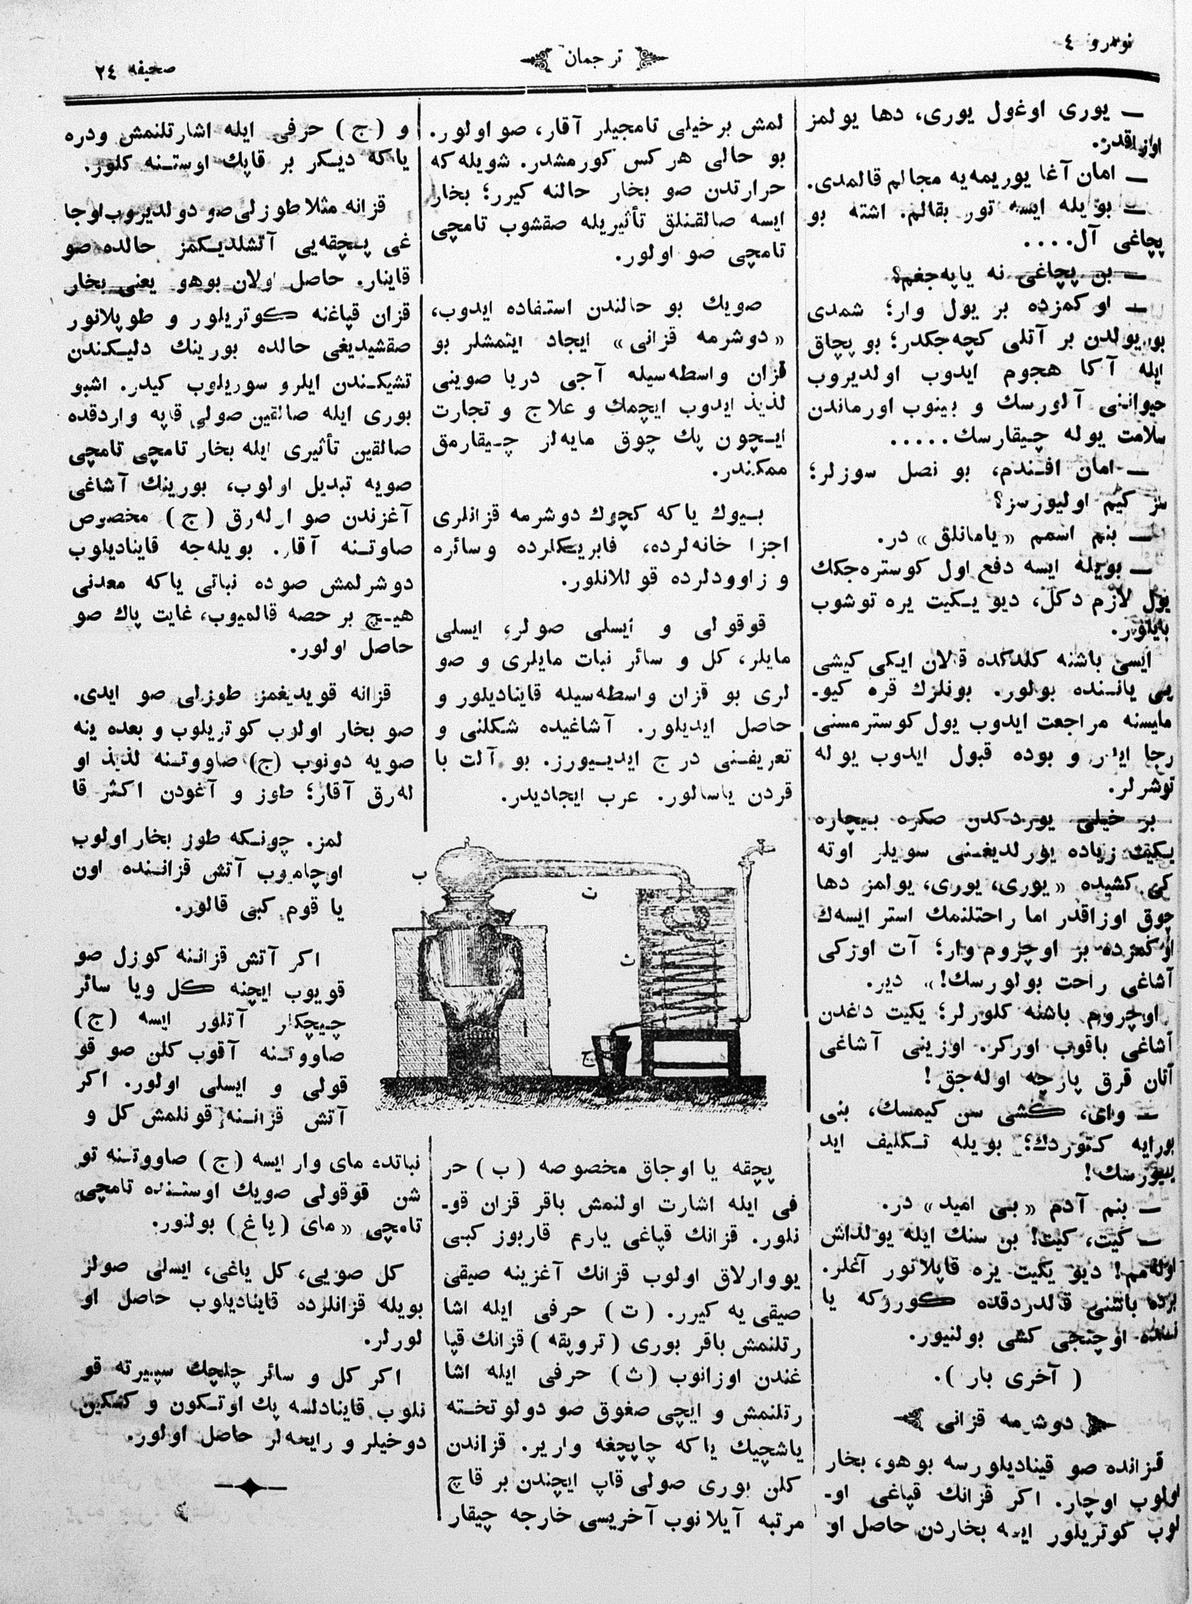 نومرو ٤
ترجمان
صحیفه ٢٤
— یوری اوغول یوری، دها یولمز
اوزاقدر.
— امان آغا یوریمه‌یه مجالم قالمدی.
— بویله ایسه تور بقالم. اشته بو
پچاغی آل....
— بن پچاغی نه یاپه‌جغم؟
— اوکمزده بر یول وار؛ شمدی
بو یولدن بر آتلی کچه‌جکدر؛ بو پچاق
ایله آکا هجوم ایدوب اولدیروب
حیواننی آلورسك و بینوب اورماندن
سلامت یوله چیقارسك.....
— امان افندم، بو نصل سوزلر؛
سز کیم اولیورسز؟
— بنم اسمم «یامانلق» در.
— بویله ایسه دفع اول کوستره‌جکك
یول لازم دکل، دیو یکیت یره توشوب
بایلور.
ایسی باشنه کلدکده قالان ایکی کیشی
یی یاننده بولور. بونلرك قره کیو-
مایسنه مراجعت ایدوب یول کوسترمسنی
رجا ایدر و بوده قبول ایدوب یوله
توشرلر.
بر خیلی یوردکدن صکره بیچاره
یکیت زیاده یورلدیغنی سویلر اوته
کی کشیده «یوری، یوری، یولمز دها
چوق اوزاقدر اما راحتلنمك استر ایسه‌ك
اوکمزده بر اوچروم وار؛ آت اوزکی
آشاغی راحت بولورسك!» دیر.
اوچروم باشنه کلورلر؛ یکیت داغدن
آشاغی باقوب اورکر. اوزینی آشاغی
آتان قرق پارچه اوله‌جق!
— وای، کشی سن کیمسك، بنی
بورایه کتوردك؛ بویله تکلیف اید
ییورسك!
— بنم آدم «بی امید» در.
— کیت، کیت! بن سنك ایله یولداش
اوله‌مم! دیو یکیت یره قاپلانور آغلر.
برده باشنی قالدردقده کوررکه یا
ننده اوچنجی کشی بولنیور.
( آخری بار ).
دوشرمه قزانی
قزانده صو قینادیلورسه بوهو، بخار
اولوب اوچار. اکر قزانك قپاغی او-
لوب کوتریلور ایسه بخاردن حاصل او
لمش برخیلی تامجیلر آقار، صو اولور.
بو حالی هرکس کورمشدر. شویله‌که
حرارتدن صو بخار حالنه کیرر؛ بخار
ایسه صالقنلق تأثیریله صقشوب تامچی
تامچی صو اولور.
صویك بو حالندن استفاده ایدوب،
«دوشرمه قزانی» ایجاد ایتمشلر بو
قزان واسطه‌سیله آجی دریا صوینی
لذیذ ایدوب ایچمك و علاج و تجارت
ایچون پك چوق مایه‌لر چیقارمق
ممکندر.
بیوك یاکه کچوك دوشرمه قزانلری
اجزا خانه‌لرده، فابریکلرده وسائره
و زاوودلرده قوللانلور.
قوقولی و ایسلی صولر، ایسلی
مایلر، کل و سائر نبات مایلری و صو
لری بو قزان واسطه‌سیله قاینادیلور و
حاصل ایدیلور. آشاغیده شکلنی و
تعریفنی درج ایدییورز. بو آلت با
قردن یاسالور. عرب ایجادیدر.
ب
ت
ث
ج
پچقه یا اوجاق مخصوصه (ب) حر
فی ایله اشارت اولنمش باقر قزان قو-
نلور. قزانك قپاغی یارم قاربوز کبی
یووارلاق اولوب قزانك آغزینه صیقی
صیقی یه کیرر. (ت) حرفی ایله اشا
رتلنمش باقر بوری (تروپقه) قزانك قپا
غندن اوزانوب (ث) حرفی ایله اشا
رتلنمش و ایچی صغوق صو دولوتخته
یاشچیك یاکه چاپچغه واریر. قزاندن
کلن بوری صولی قاپ ایچندن بر قاچ
مرتبه آیلانوب آخریسی خارجه چیقار
و (ج) حرفی ایله اشارتلنمش ودره
یاکه دیکر بر قاپك اوستنه کلور.
قزانه مثلا طوزلی صو دولدیروب اوجا
غی پچقه‌یی آتشلدیکمز حالده صو
قاینار. حاصل اولان بوهو یعنی بخار
قزان قپاغنه کوتریلور و طوپلانور
صقشیدیغی حالده بورینك دلیکندن
تشیکندن ایلرو سوریلوب کیدر. اشبو
بوری ایله صالقین صولی قاپه واردقده
صالقین تأثیری ایله بخار تامچی تامچی
صویه تبدیل اولوب، بورینك آشاغی
آغزندن صو اوله‌رق (ج) مخصوص
صاوتنه آقار. بویله‌جه قاینادیلوب
دوشرلمش صوده نباتی یاکه معدنی
هیچ بر حصه قالمیوب، غایت پاك صو
حاصل اولور.
قزانه قویدیغمز طوزلی صو ایدی.
صو بخار اولوب کوتریلوب و بعده ینه
صویه دونوب (ج) صاووتنه لذیذ او
له‌رق آقار؛ طوز و آغودن اکثر قا
لمز. چونکه طوز بخار اولوب
اوچامیوب آتش قزاننده اون
یا قوم کبی قالور.
اکر آتش قزاننه کوزل صو
قویوب ایچنه کل ویا سائر
چیچکلر آتلور ایسه (ج)
صاووتنه آقوب کلن صو قو
قولی و ایسلی اولور. اکر
آتش قزاننه قونلمش کل و
نباتده مای وار ایسه (ج) صاووتنه تو
شن قوقولی صویك اوستنده تامچی
تامچی «مای (یاغ) بولنور.
کل صویی، کل یاغی، ایسلی صولر
بویله قزانلرده قاینادیلوب حاصل او
لورلر.
اکر کل و سائر چیچك سپیرته قو
نلوب قاینادلسه پك اوتکون و کسکین
دوخیلر و رایحه‌لر حاصل اولور.